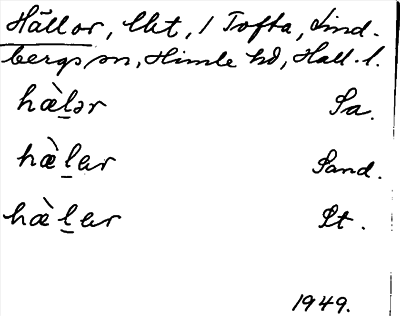 Hällor, lht, i Tofta, Lind-
bergs sn, Himle hd, Hall. l.
hæ̀l̲ər Sa.
hæ̀l̲ar Sand.
hæ̀l̲ar St.
1949.